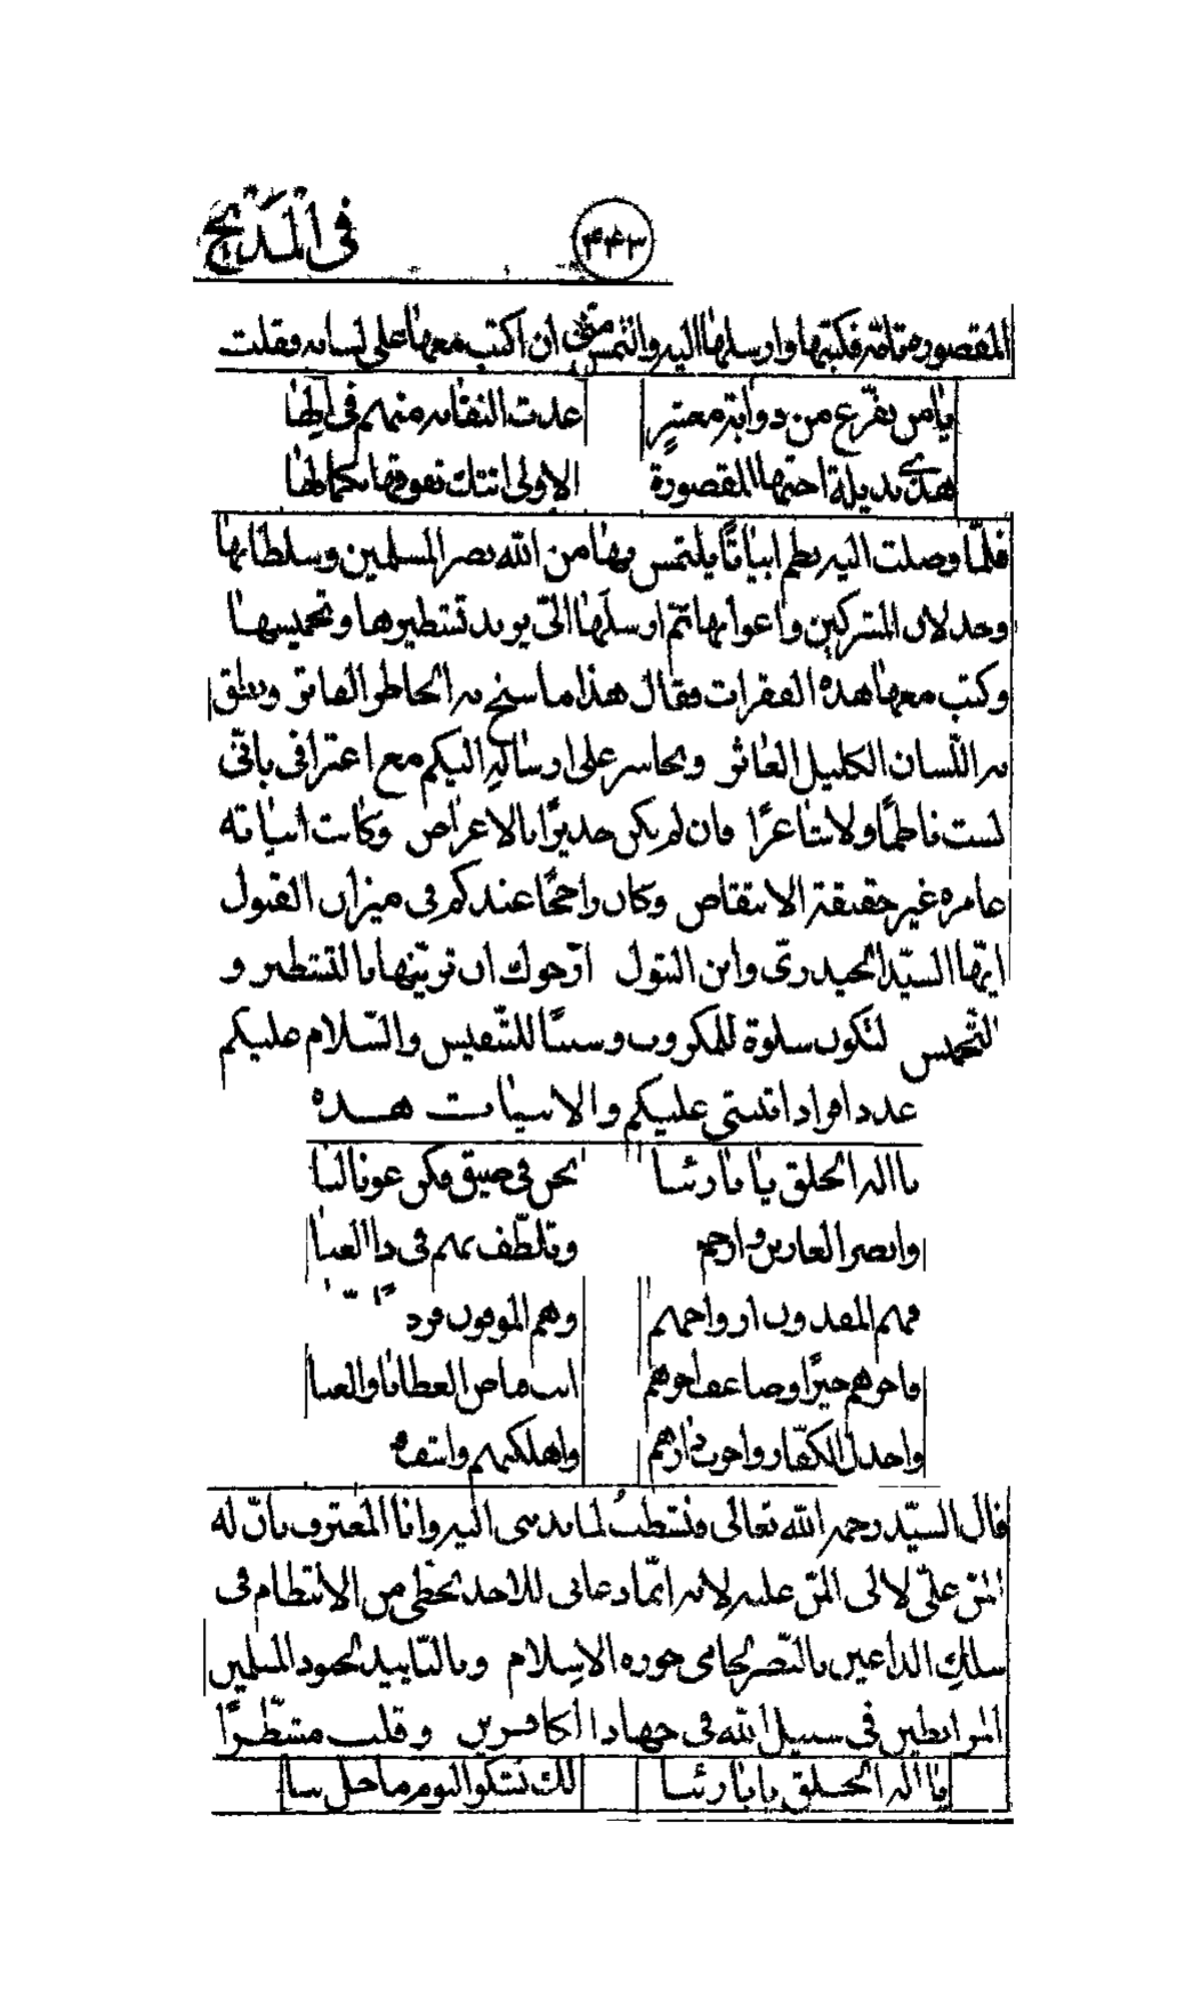 في المديح
٤٤٣
المقصورة تمامه فكتبتها وارسلها اليه والتمس مني ان اكتب معها على لسانه وقلت
يا من تفرع من ذوابة معشر
عدت النقابه منهم في اهلها
هذي بديلة اختها المقصورة
الاولى اتتك تفوقها بكمالها
فلما وصلت اليه نظم ابياتا يلتمس بها من الله نصر المسلمين وسلطانها
وخذلان المشركين واعوانها ثم ارسلها الي يريد تشطيرها وتخميسها
وكتب معها هذه الفقرات فقال هذا ما سنح به الخاطر الفاتر ونطق
به اللسان الكليل العاثر وتجاسر على ارساله اليكم مع اعترافي باني
لست ناظما ولا شاعرا فان لم يكن جديرا بالاعراض وكانت ابياته
عامره غير حقيقة الانتقاض وكان راجحا عندكم في ميزان القبول
ايها السيد الحيدري وابن البتول ارجوك ان تزينها بالتشطير و
التخميس لتكون سلوة للمكروب وسببا للتنفيس والسلام عليكم
عدد افراد عليكم والابيات هذه
يا اله الخلق يا يا ربنا
نحن في ضيق فكن عونا لنا
وانصر الغازين وارحم
وتلطف بهم في ذا العنا
فهم المفدون ارواحهم
وهم الموفون
واجزهم خيرا وضاعف اجرهم
انت فياض العطايا والغنا
واخذل الكفار واخرب دارهم
واهلكهم وانتقم
قال السيد رحمه الله تعالى فشطرت لما ندبني اليه وانا المعترف بان له
المن علي لا لي المن عليه لانه انما دعاني للاخذ بحظي من الانتظام في
سلك الداعين بالنصر لحامي حوزة الاسلام وبالتاييد لجنود المسلمين
المرابطين في سبيل الله في جهاد الكافرين وقلت مشطرا
يا اله الخلق يا يا ربنا
لك نشكو اليوم ما حل بنا